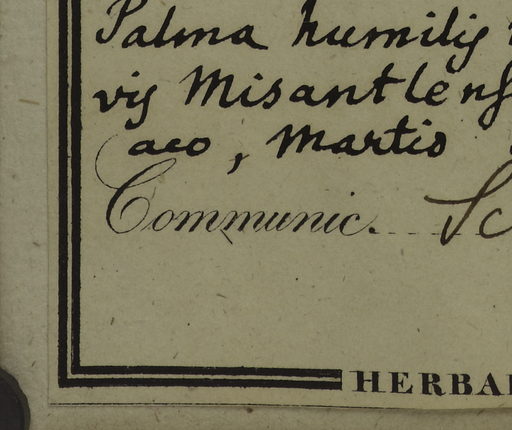 Palma humilis
vis Misantlens
aco, Martio
Communic. Sc
HERBA